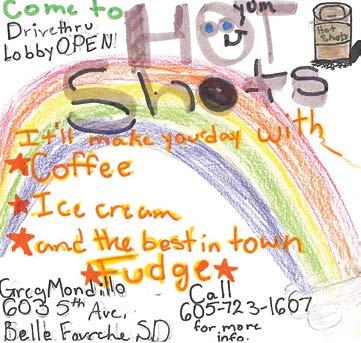 Come to
Drive thru
Lobby OPEN!
HOT
yum
Hot Shots
Shots
It'll make your day with
Coffee
Ice cream
and the best in town
Fudge
Greg Mondillo
603 5th Ave.
Belle Fourche SD
Call
605-723-1607
for more
info.